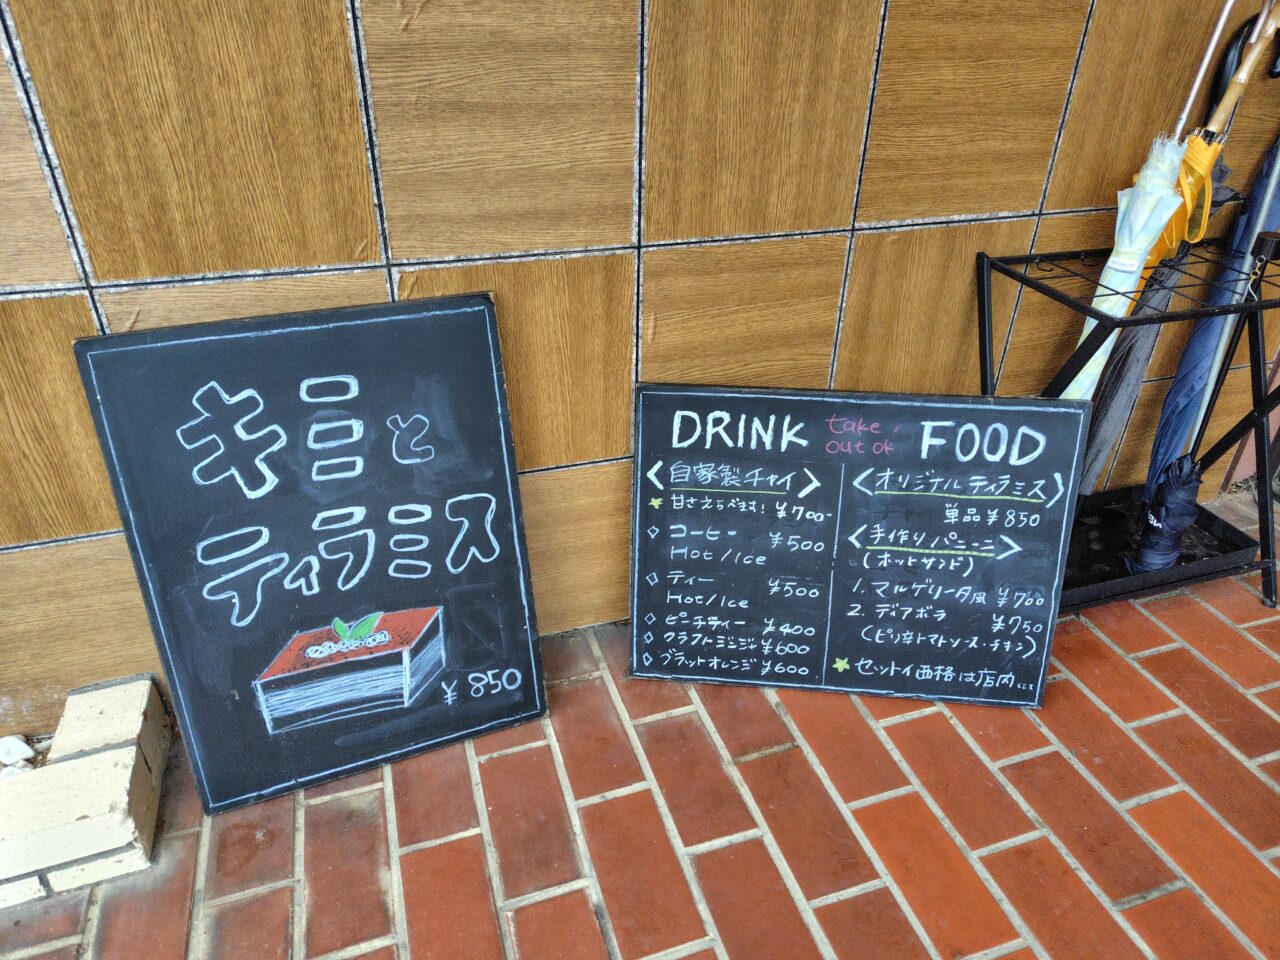 キミと
ティラミス
¥850
DRINK
take
out ok
FOOD
<自家製チャイ>
甘さえらべます! ¥700-
◇ コーヒー ¥500
Hot/Ice
◇ ティー ¥500
Hot/Ice
◇ ピーチティー ¥400
◇ クラフトジンジャー ¥600
◇ ブラッドオレンジ ¥600
<オリジナルティラミス>
単品 ¥850
<手作りパニーニ>
(ホットサンド)
1. マルゲリータ風 ¥700
2. ディアボラ ¥750
(ピリ辛トマトソース・チキン)
セット価格は店内にて